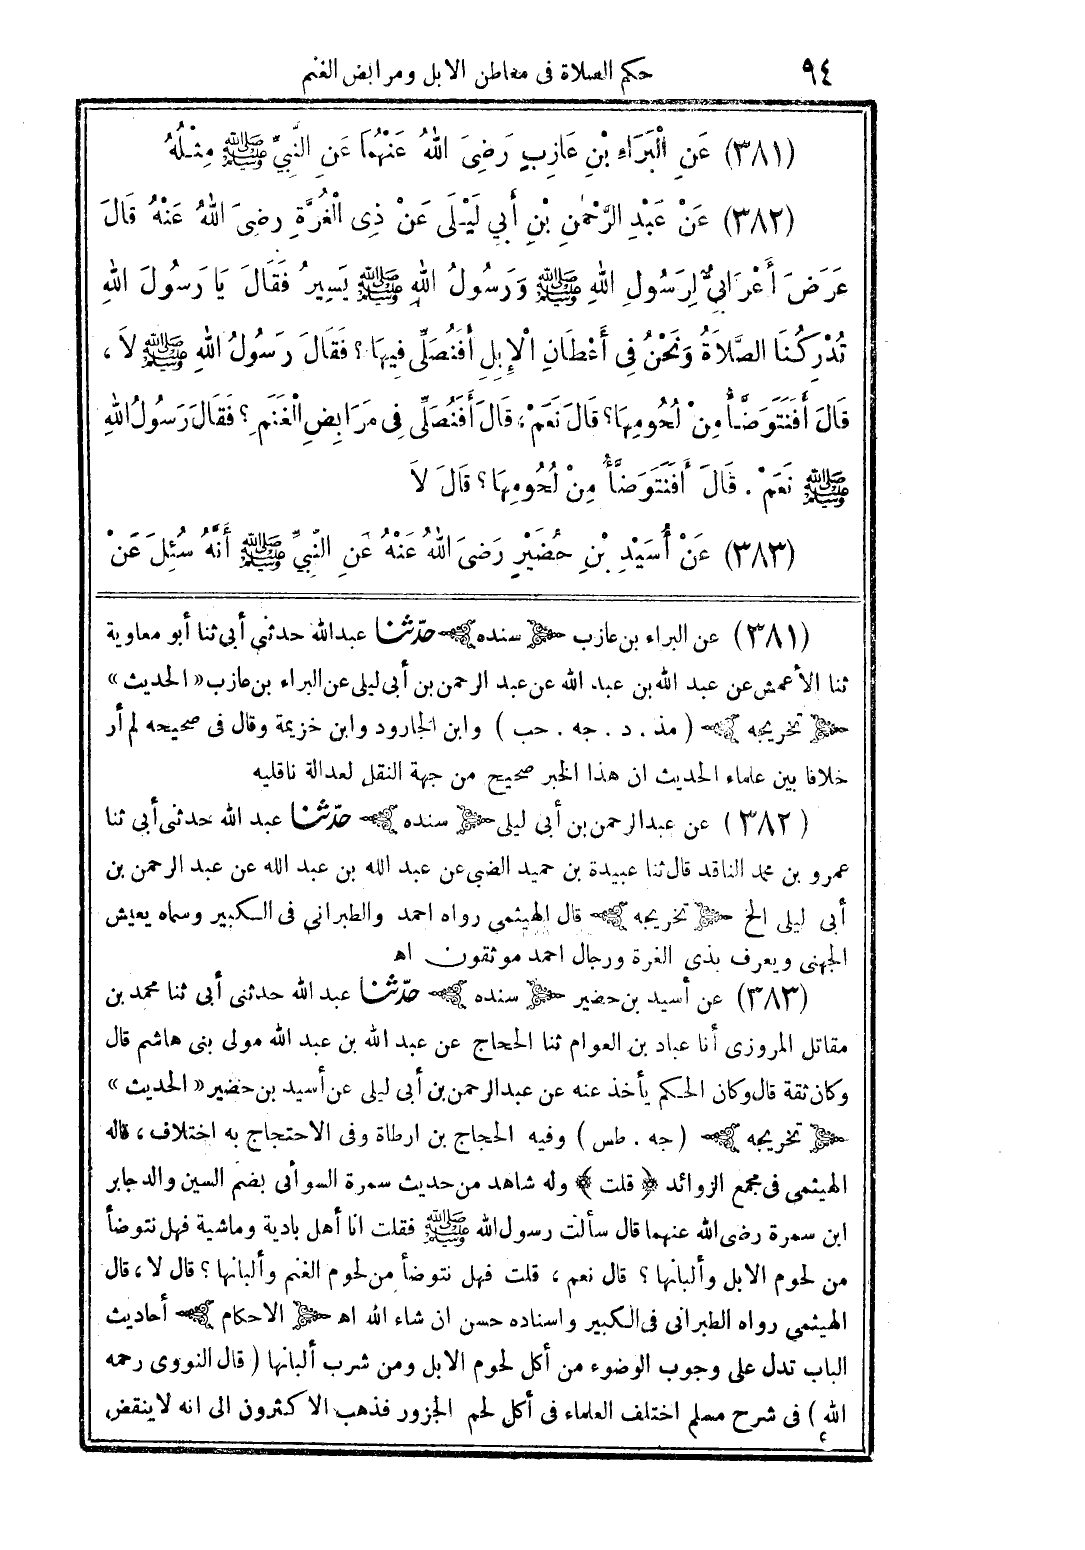 ٩٤
حكم الصلاة فى معاطن الابل ومرابض الغنم
(٣٨١) عَنِ الْبَرَاءِ بْنِ عَازِبٍ رَضِىَ اللهُ عَنْهُمَا عَنِ النَّبِيِّ ﷺ مِثْلُهُ
(٣٨٢) عَنْ عَبْدِ الرَّحْمٰنِ بْنِ أَبِي لَيْلَى عَنْ ذِى الْغُرَّةِ رضِىَ اللهُ عَنْهُ قَالَ
عَرَضَ أَعْرَابِيٌّ لِرَسُولِ اللهِ ﷺ وَرَسُولُ اللهِ ﷺ يَسِيرُ فَقَالَ يَا رَسُولَ اللهِ
تُدْرِكُنَا الصَّلاَةُ وَنَحْنُ فِى أَعْطَانِ الْإِبِلِ أَفَنُصَلِّى فِيهَا ؟ فَقَالَ رَسُولُ اللهِ ﷺ لاَ ،
قَالَ أَفَنَتَوَضَّأُ مِنْ لُحُومِهَا؟ قَالَ نَعَمْ، قَالَ أَفَنُصَلِّى فِى مَرَابِضِ الْغَنَمِ ؟ فَقَالَ رَسُولُ اللهِ
ﷺ نَعَمْ . قَالَ أَفَنَتَوَضَّأُ مِنْ لُحُومِهَا؟ قَالَ لاَ
(٣٨٣) عَنْ أُسَيْدِ بْنِ حُضَيْرٍ رَضِىَ اللهُ عَنْهُ عَنِ النَّبِيِّ ﷺ أَنَّهُ سُئِلَ عَنْ
(٣٨١) عن البراء بن عازب ﴿ سنده ﴾ حدّثنا عبدالله حدثنى أبى ثنا أبو معاوية
ثنا الأعمش عن عبد الله بن عبد الله عن عبد الرحمن بن أبى ليلى عن البراء بن عازب « الحديث »
﴿ تخريجه ﴾ ( مذ . د . جه . حب ) وابن الجارود وابن خزيمة وقال فى صحيحه لم أر
خلافا بين علماء الحديث ان هذا الخبر صحيح من جهة النقل لعدالة ناقليه
( ٣٨٢ ) عن عبدالرحمن بن أبى ليلى ﴿ سنده ﴾ حدّثنا عبد الله حدثنى أبى ثنا
عمرو بن محمد الناقد قال ثنا عبيدة بن حميد الضبى عن عبد الله بن عبد الله عن عبد الرحمن بن
أبى ليلى الخ ﴿ تخريجه ﴾ قال الهيثمى رواه احمد والطبرانى فى الكبير وسماه يعيش
الجهنى ويعرف بذى الغرة ورجال احمد موثقون اه
(٣٨٣) عن أسيد بن حضير ﴿ سنده ﴾ حدّثنا عبد الله حدثنى أبى ثنا محمد بن
مقاتل المروزى أنا عباد بن العوام ثنا الحجاج عن عبد الله بن عبد الله مولى بنى هاشم قال
وكان ثقة قال وكان الحكم يأخذ عنه عن عبدالرحمن بن أبى ليلى عن أسيد بن حضير « الحديث »
﴿ تخريجه ﴾ ( جه . طس ) وفيه الحجاج بن ارطاة وفى الاحتجاج به اختلاف ، قاله
الهيثمى فى مجمع الزوائد ﴿ قلت ﴾ وله شاهد من حديث سمرة السوأنى بضم السين والد جابر
ابن سمرة رضى الله عنهما قال سألت رسول الله ﷺ فقلت انا أهل بادية وماشية فهل نتوضأ
من لحوم الابل وألبانها ؟ قال نعم ، قلت فهل نتوضأ من لحوم الغنم وألبانها ؟ قال لا ، قال
الهيثمى رواه الطبرانى فى الكبير واسناده حسن ان شاء الله اه ﴿ الاحكام ﴾ أحاديث
الباب تدل على وجوب الوضوء من أكل لحوم الابل ومن شرب ألبانها ( قال النووى رحمه
الله ) فى شرح مسلم اختلف العلماء فى أكل لحم الجزور فذهب الاكثرون الى انه لاينقض